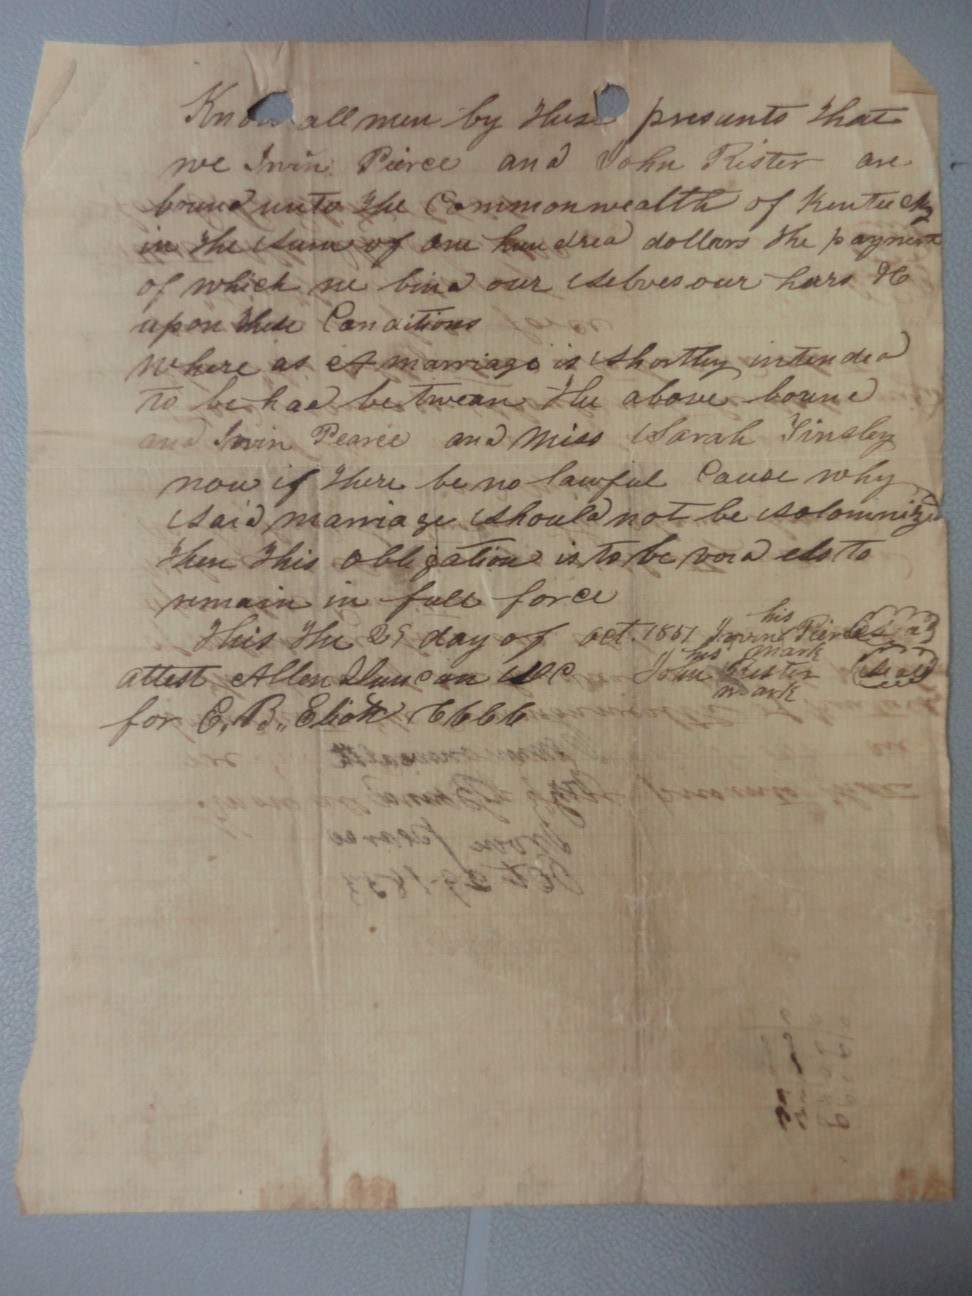 Know all men by these presents that
we Irvin Pierce and John Rister are
bound unto the Commonwealth of Kentucky
in the sum of one hundred dollars the payment
of which we bind our selves our hars &C
upon these Conditions
Where as A marriage is shortley intended
to be had betwean the above bound
and Irvin Pearce and Miss Sarah Tinsley
now if there be no lawful Cause why
said marriage should not be solomnized
then this obligation is to be void els to
remain in full force
This the 29 day of oct. 1851 Irvin his mark Pierce Seal
attest Allen Duncan DC John his mark Rister Seal
for E. B. Eliott